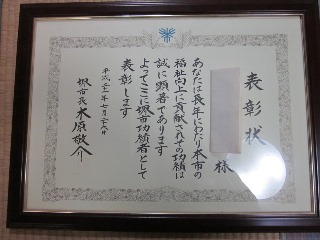 表彰状
様
あなたは長年にわたり本市の
福祉向上に貢献されその功績は
誠に顕著であります
よってここに堺市功績者として
表彰します
平成二十一年七月二十六日
堺市長 木原敬介